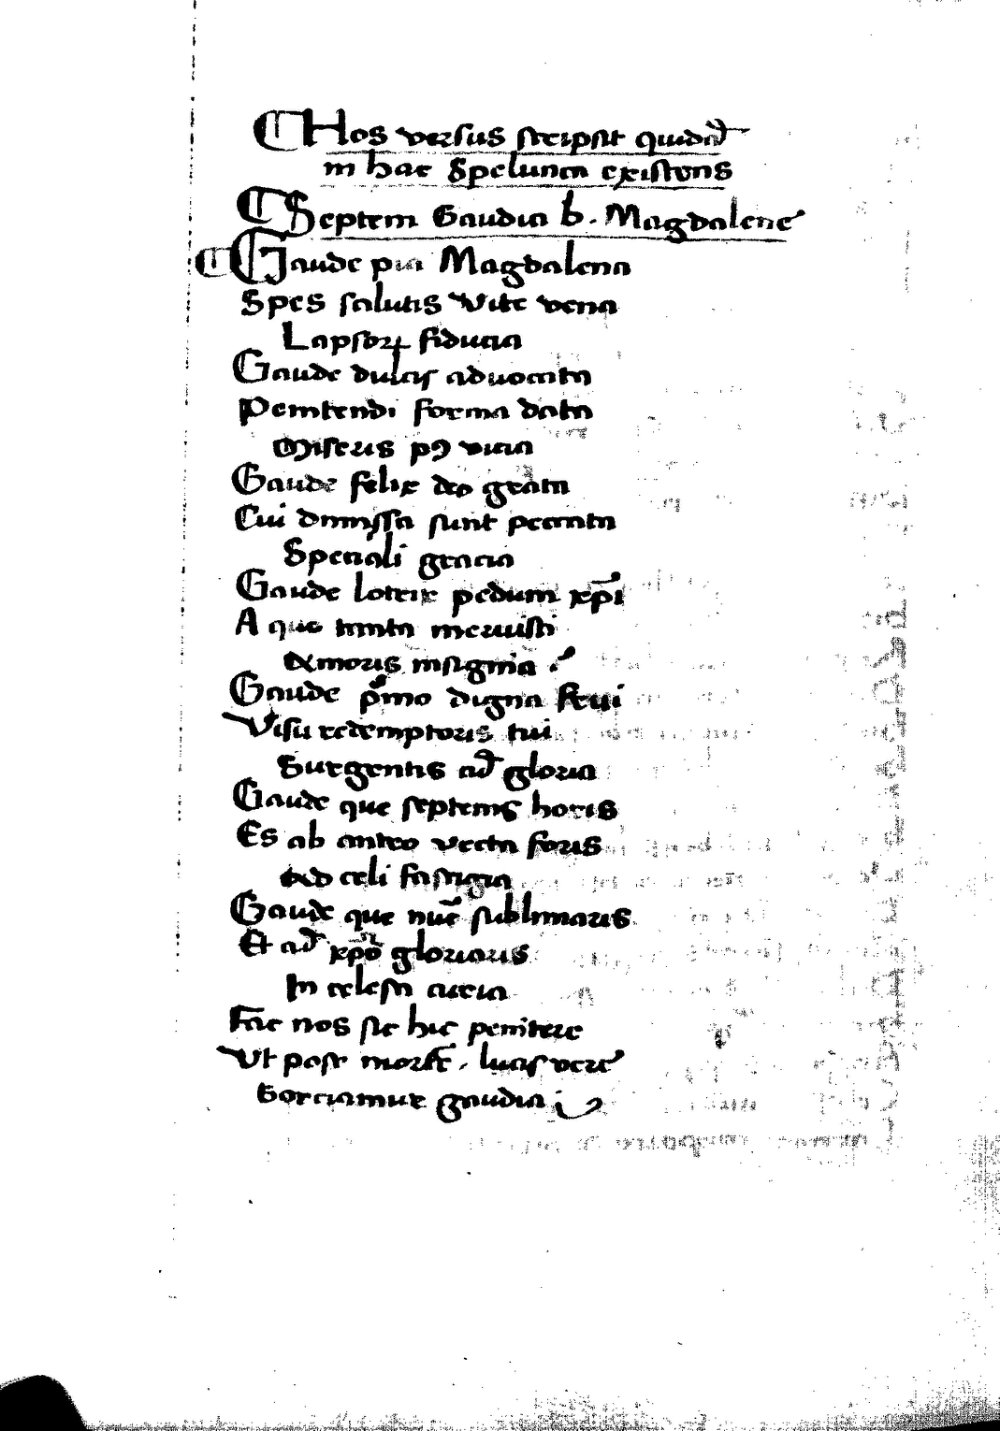 Hos versus scripsit quidā
in hac spelunca existens
Septem Gaudia b. Magdalene
Gaude pia Magdalena
Spes salutis vite vena
Lapsoꝝ fiducia
Gaude dulcis advocata
Penitendi forma data
Miseris pꝰ vicia
Gaude felix deo grata
Cui dimissa sunt peccata
Speciali gracia
Gaude lotrix pedum xp̄i
A quo tanta meruisti
Amoris insignia
Gaude p̄mo digna frui
Visu redemptoris tui
Surgentis ad gloria
Gaude que septenis horis
Es ab antro vecta foris
Ad celi fastigia
Gaude que nūc sublimaris
Et ad xp̄o gloriaris
In celesti curia
Fac nos sic hic penitere
Ut post mortē . lucis vere
Sorciamur gaudia